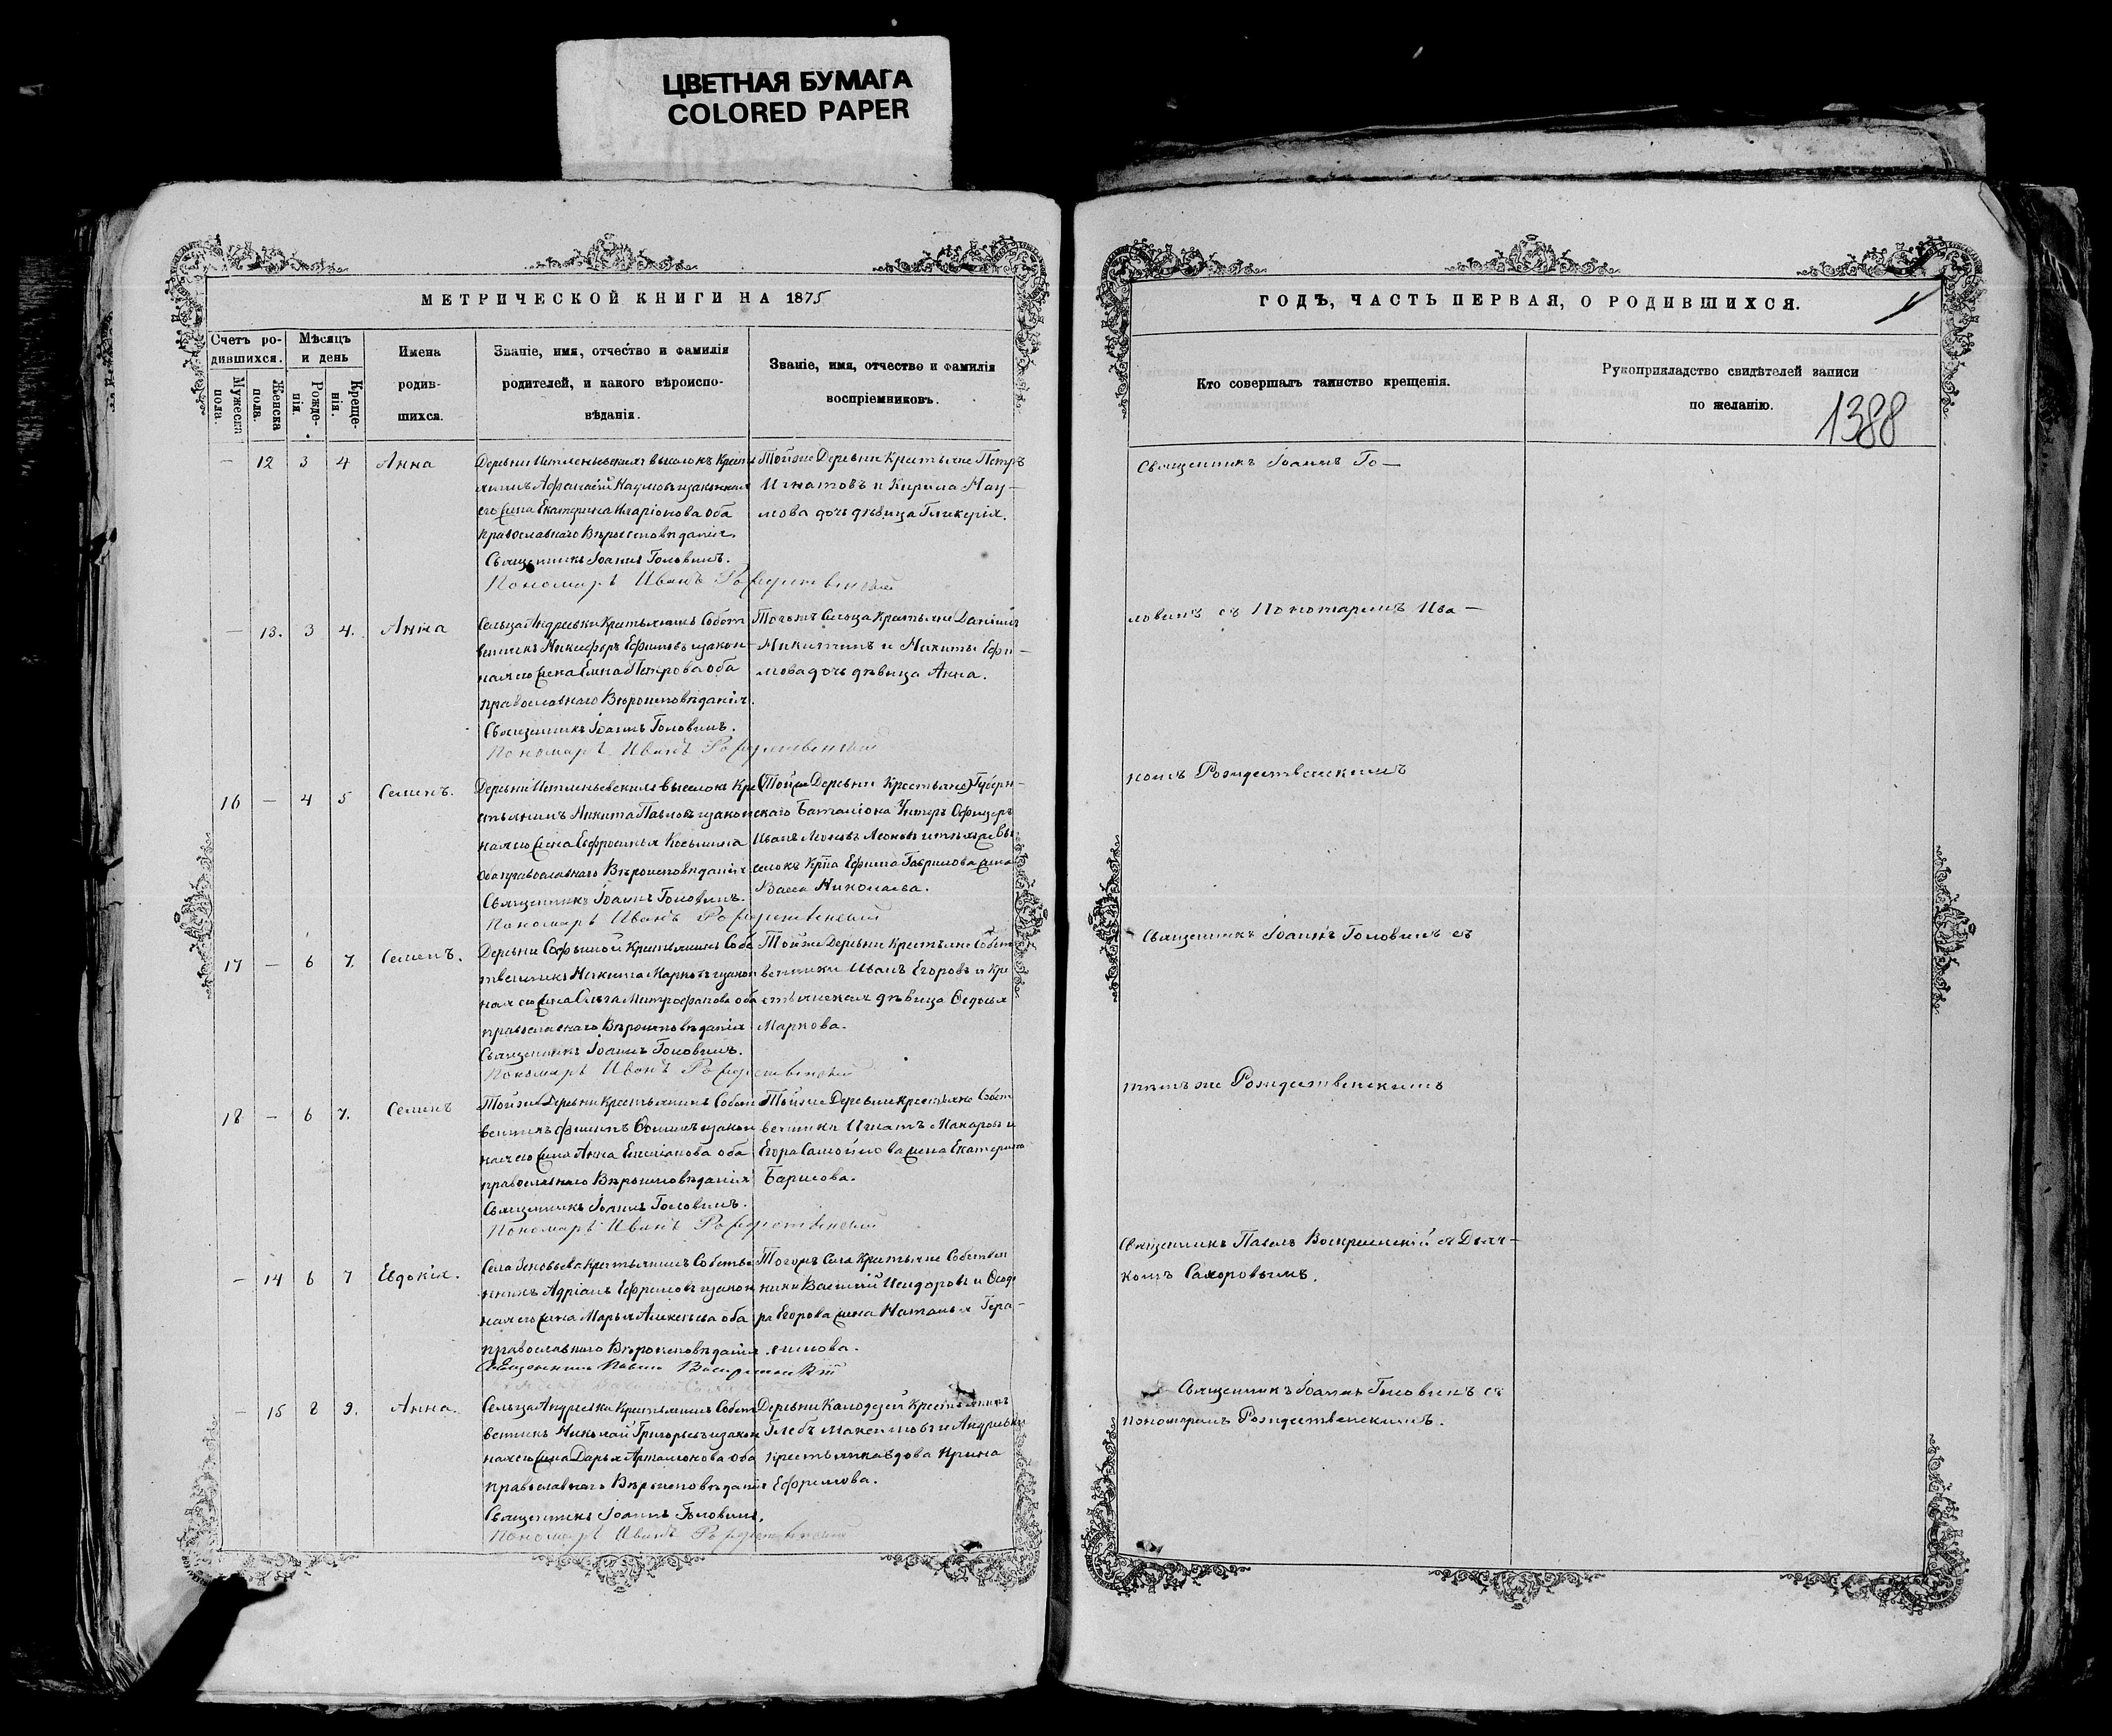 ЦВЕТНАЯ БУМАГА
COLORED PAPER
МЕТРИЧЕСКОЙ КНИГИ НА 1875
Счетъ родившихся.
Мѣсяцъ и день
Имена родившихся.
Званіе, имя, отчество и фамилія родителей, и какого вѣроисповѣданія.
Званіе, имя, отчество и фамилія воспріемниковъ.
Мужеска пола.
Женска пола.
Рожденія.
Крещенія.
— 12 3 4 Анна
Деревни выселокъ Крестья
нинъ Афанасій Наумовъ и законная
его жена Екатерина Иларіонова оба
православнаго Вѣроисповѣданія.
Священникъ Іоаннъ Головинъ.
Пономарь Иванъ Рождественскій
Тойже Деревни Крестьяне Петръ
Игнатовъ и Кирила Нау—
мова дочь дѣвица Гликерія.
— 13. 3 4. Анна
Сельца Андреевки Крестьянинъ Собст
венникъ Никифоръ Ефимовъ и закон—
ная его жена Елена Петрова оба
православнаго Вѣроисповѣданія.
Священникъ Іоаннъ Головинъ.
Пономарь Иванъ Рождественскій
Тогожъ Сельца Крестьяне Даніилъ
Никитинъ и Никиты Ефи—
мова дочь дѣвица Анна.
16 — 4 5 Семенъ.
Деревни выселокъ Кре
стьянинъ Никита Павловъ и закон
ная его жена Евфросинья Косьмина
оба православнаго Вѣроисповѣданія
Священникъ Іоаннъ Головинъ.
Пономарь Иванъ Рождественскій
(Тойже Деревни Крестьяне) Губерн—
скаго Баталіона Унтеръ Офицеръ
Иванъ Леоновъ и тѣхже Вы
селокъ Ефима Гаврилова жена
Васса Николаева.
17 — 6 7. Семенъ.
Деревни Софьиной Крестьянинъ Соб
ственникъ Никита Марковъ и закон
ная его жена Ольга Митрофанова оба
православнаго Вѣроисповѣданія
Священникъ Іоаннъ Головинъ.
Пономарь Иванъ Рождественскій
Тойже Деревни Крестьяне Собст
венники Иванъ Егоровъ и Кре
стьянская дѣвица Ѳедосья
Маркова.
18 — 6 7. Семенъ
Тойже Деревни Крестьянинъ Собст
венникъ Ѳоминъ и закон
ная его жена Анна оба
православнаго Вѣроисповѣданія
Священникъ Іоаннъ Головинъ.
Пономарь Иванъ Рождественскій
Тойже Деревни крестьяне Собст
венники Игнатъ Макаровъ и
Егора Самойлова жена Екатерина
Барисова.
— 14 6 7 Евдокія.
Села Зиновьева Крестьянинъ Собстве
нникъ Адріанъ Ефремовъ и закон
ная его жена Марья Алексѣева оба
православнаго Вѣроисповѣданія
Священникъ Павелъ Воскресенскій
Тогожъ Села Крестьяне Собствен
ники Василій Исидоровъ и Ѳеодо
ра Егорова жена Наталья Гера—
симова.
— 15 8 9. Анна.
Сельца Андреевки Крестьянинъ Собст
венникъ Николай Григорьевъ и закон
ная его жена Дарья Артамонова оба
православнаго Вѣроисповѣданія
Священникъ Іоаннъ Головинъ.
Пономарь Иванъ Рождественскій
Деревни Калодезей Крестьянинъ
Глебъ Максимовъ и Андреевки
крестьянка вдова Ирина
Ефремова.
ГОДЪ, ЧАСТЬ ПЕРВАЯ, О РОДИВШИХСЯ.
Кто совершалъ таинство крещенія.
Рукоприкладство свидѣтелей записи
по желанію.
1388
Священникъ Іоаннъ Го—
ловинъ съ Пономаремъ Ива—
номъ Рождественскимъ
Священникъ Іоаннъ Головинъ съ
тѣмъ же Рождественскимъ
Священникъ Павелъ Воскресенскій съ Дьяч—
комъ Сахаровымъ.
Священникъ Іоаннъ Головинъ съ
пономаремъ Рождественскимъ.